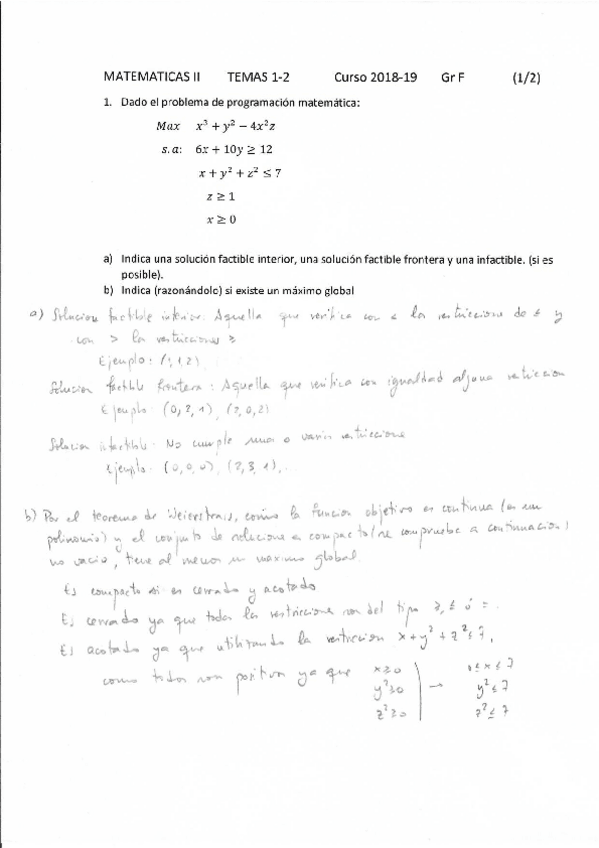 MATEMATICAS II TEMAS 1-2 Curso 2018-19 Gr F (1/2)
1. Dado el problema de programación matemática:
Max x³ + y² − 4x²z
s.a: 6x + 10y ≥ 12
x + y² + z² ≤ 7
z ≥ 1
x ≥ 0
a) Indica una solución factible interior, una solución factible frontera y una infactible. (si es
posible).
b) Indica (razonándolo) si existe un máximo global
a) Solucion factible interior: Aquella que verifica con < las restricciones de ≤ y
con > las restricciones ≥
Ejemplo: (1,1,2)
Solucion factible frontera: Aquella que verifica con igualdad alguna restriccion
Ejemplo (0,2,1), (2,0,2)
Solucion infactible. No cumple una o varias restricciones
Ejemplo. (0,0,0), (2,3,1),..
b) Por el teorema de Weierstrass, como la funcion objetivo es continua (es un
polinomio) y el conjunto de soluciones es compacto (se comprueba a continuacion)
no vacio, tiene al menos un maximo global.
Es compacto si es cerrado y acotado.
Es cerrado ya que todas las restricciones son del tipo ≥, ≤ ó =.
Es acotado ya que utilizando la restriccion x + y² + z² ≤ 7,
como todos son positivos ya que x≥0 0≤x≤7
y²≥0 → y²≤7
z²≥0 z²≤7